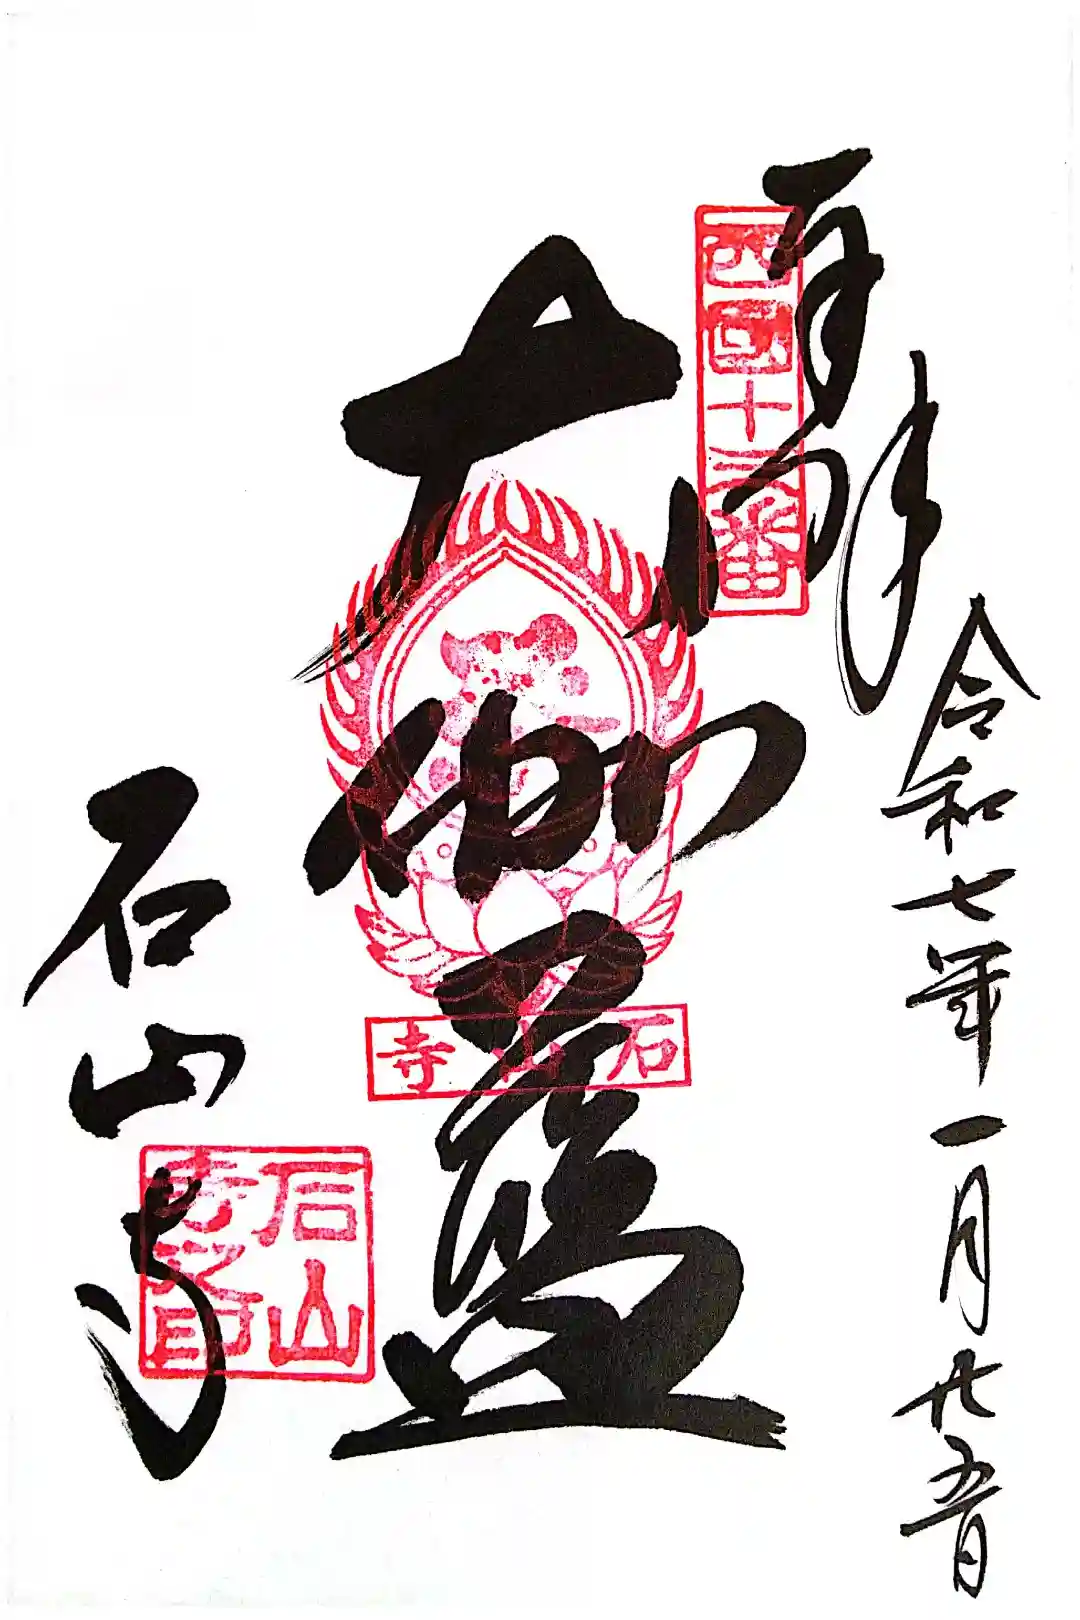 奉拝
令和七年一月廿五日
西国十三番
大伽藍
石山寺
石山寺
石山寺之印